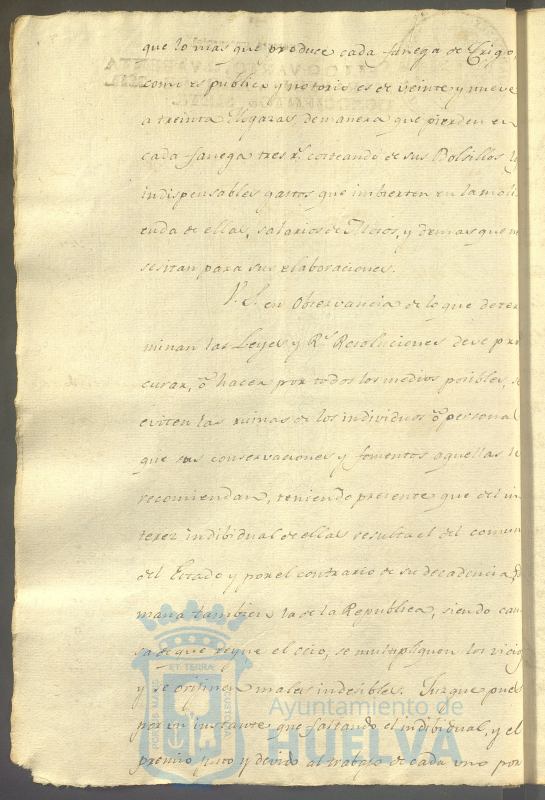 que lo mas que produce cada fanega de Trigo,
como es publico y notorio es de veinte y nueve
a treinta Hogazas, demanera que pierden en
cada fanega tres rs. costeando de sus Bolsillos
indispensables gastos que imbierten en la moli
enda de ellas, salarios de Mozos, y demas que ne
sesitan para sus elaboraciones.
V. S. en Observancia de lo que deter
minan las Leyes y Rs. Resoluciones deve pro
curar, ó hacer por todos los medios posibles, se
eviten las ruinas de los individuos ó personas
que sus conservaciones y fomentos aquellas le
recomiendan, teniendo presente que del in
terez indibidual de ellas resulta el del comun
del Estado y por el contrario de su decadencia
mana tambien la de la Republica, siendo cau
sa de que reyne el ocio, se multipliquen los vicios
y se originen males indesibles. Jusgue pues
por un instante que faltando el indibidual, y el
premio justo y devido al trabajo de cada uno por
ET TERRA
Ayuntamiento de
HUELVA